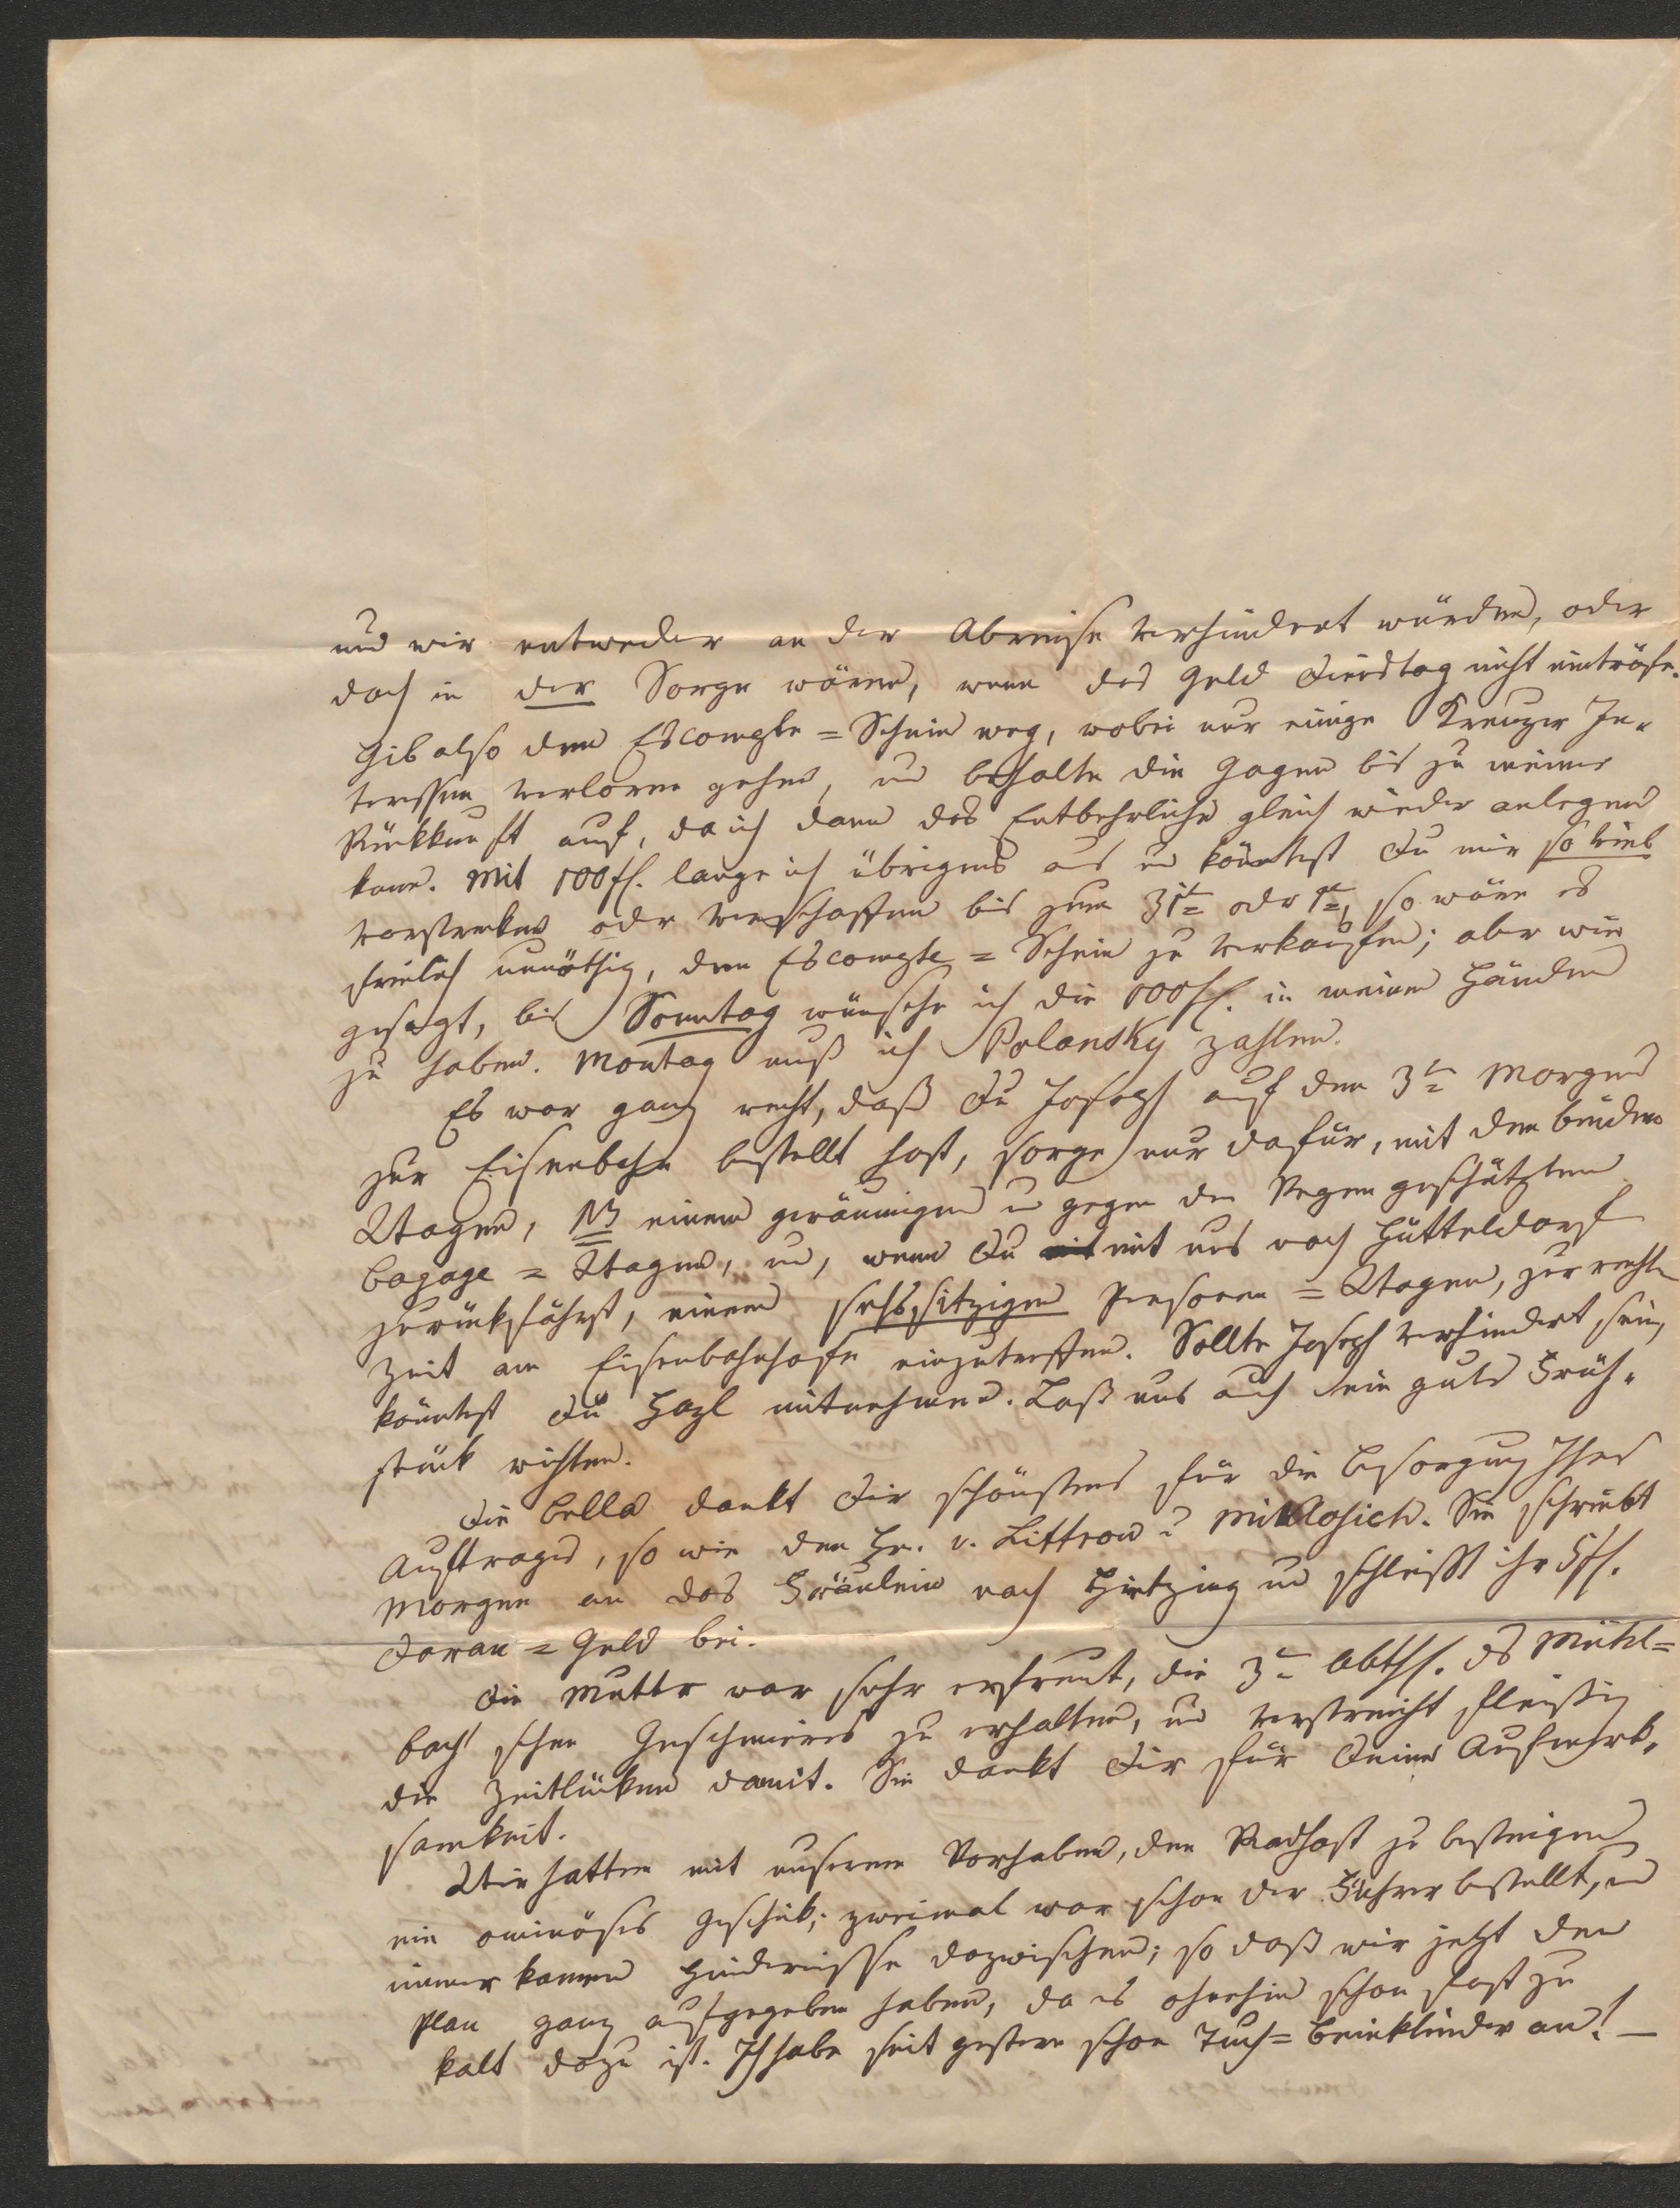 und wir entweder an der Abreise verhindert würden, oder
doch in der Sorge wären, wenn das Geld Dienstag nicht einträfe.
Gib also den Escompte=Schein weg, wobei nur einige Kreuzer In-
teressen verloren gehen, und behalte die Gagen bis zu meiner
Rückkunft auf, da ich dann das Entbehrliche gleich wieder anlegen
kann. Mit 100 fl. lange ich übrigens aus und könntest Du mir so viel
vorstrecken oder verschaffen bis zum 31t oder 1t, so wäre es
freilich unnöthig, den Escompte=Schein zu verkaufen; aber wie
gesagt, bis Sonntag wünsche ich die 100 fl. in meinen Händen
zu haben. Montag muß ich Polansky zahlen.
Es war ganz recht, daß Du Joseph auf den 3t Morgens
zur Eisenbahn bestellt hast, sorge nur dafür, mit den beiden
Wagen, NB einem geräumigen u gegen den Regen geschützten
Bagage=Wagen, und, wenn Du mit uns nach Hütteldorf
zurückfährst, einem sechssitzigen Personen=Wagen, zur rechten
Zeit am Eisenbahnhofe einzutreffen. Sollte Joseph verhindert sein,
könntest Du Hazl mitnehmen. Laß uns auch ein gutes Früh-
stück richten.
Die Bella dankt Dir schönstens für die Besorgung Ihres
Auftrages, so wie den Hr. v. Littrow u Miklosich. Sie schreibt
Morgen an das Fräulein nach Hietzing und schließt ihr 5 fl.
Daran=Geld bei.
Die Mutter war sehr erfreut, die 3te Abthl. des Mühl=
bach'schen Geschmieres zu erhalten, und verstreicht fleißig
die Zeitlücken damit. Sie dankt Dir für Deine Aufmerk-
samkeit.
Wir hatten mit unserem Vorhaben, den Radhost zu besteigen
ein ominöses Geschick; zweimal war schon der Führer bestellt, und
immer kamen Hindernisse dazwischen; so daß wir jetzt den
Plan ganz aufgegeben haben, da es ohnehin schon fast zu
kalt dazu ist. Ich habe seit gestern schon Tuch=Beinkleider an! —